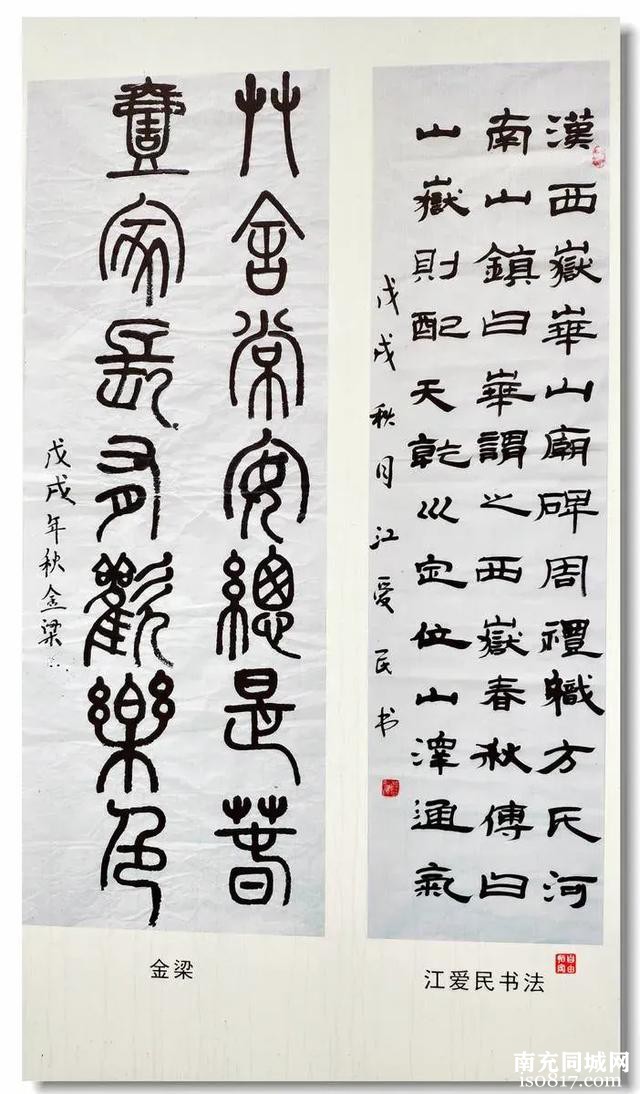 漢西嶽華山廟碑周禮軄方氏河
南山鎮曰華謂之西嶽春秋傳曰
山嶽則配天乾巛定位山澤通氣
戊戌秋月江爱民书
艸舍常安總是春
家長有歡樂色
戊戌年秋金梁
金梁
江爱民书法
南充同城网
iso817.com